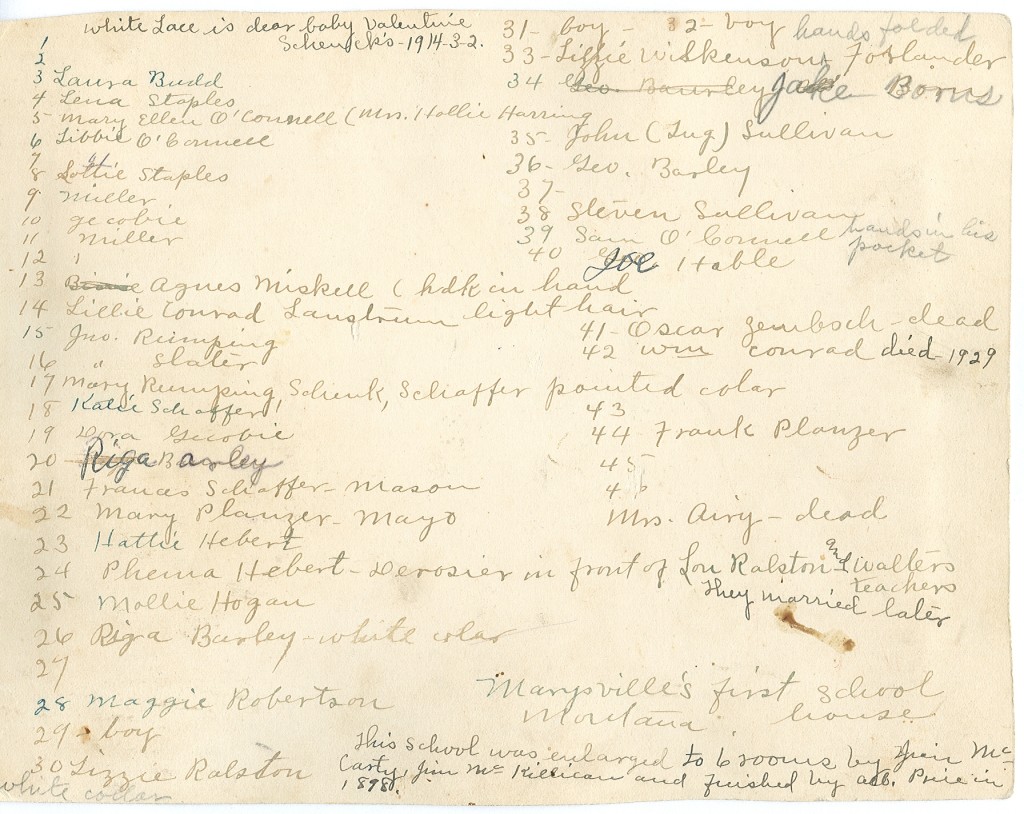 white Lace is dear baby Valentine
Schenck's-1914-3-2.
1
2
3 Laura Budd
4 Lena Staples
5- Mary Ellen O'Connell (Mrs. Hollie Harring
6 Libbie O'Connell
7 "
8 Lottie Staples
9 Miller
10 gecobie
11 Miller
12 1
13 Agnes Miskell (hdk in hand
14 Lillie Conrad Lanstrum light hair
15- Jno. Rumping
16 " Slater
17 Mary Rumping, Schenk, Schaffer pointed colar
18 Katie Schaffer!
19 Dora Gecobie
20 Riga Barley
21 Frances Schaffer-Mason
22 Mary Planzer-Mayo
23 Hattie Hebert
24 Phema Hebert-Derosier in front of Lou Ralston and Walters
teachers
They married later
25 Mollie Hogan
26 Riga Barley-white colar
27
28 Maggie Robertson
29- boy
30 Lizzie Ralston
white collar
31- boy- 32- boy hands folded
33- Lizzie Wilkenson Forlander
34 Geo. Baurley Jake Borns
35- John (Tug) Sullivan
36- Geo. Barley
37-
38 Steven Sullivan
39 Sam O'Connell hands in his
pocket
40 Joe Hable
41- Oscar Zembsch-dead
42 Wm Conrad died-1929
43
44 Frank Planzer
45
46
Mrs. Airy-dead
Marysville's first school
Montana house
This school was enlarged to 6 rooms by Jim Mc
Carty, Jim Mc Killican and finished by Price in
1898.